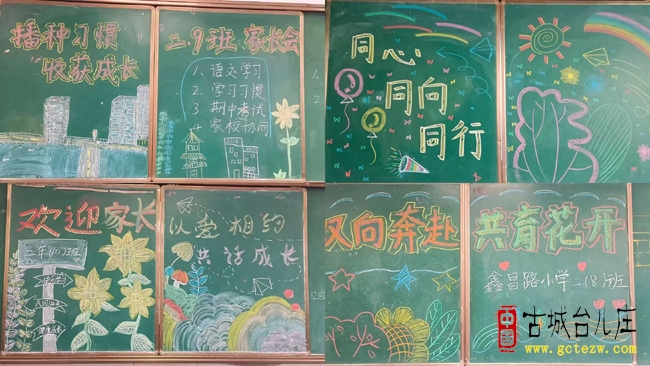 播种习惯
"收获成长
二.9班 家长会
1、语文学习
2、学习习惯
3、期中考试
4、家校协同
同心
同向
同行
欢迎家长
二年10班
以爱相约
共话成长
双向奔赴
共育花开
鑫昌路小学二(8)班
中国
古城台儿庄
www.gctezw.com